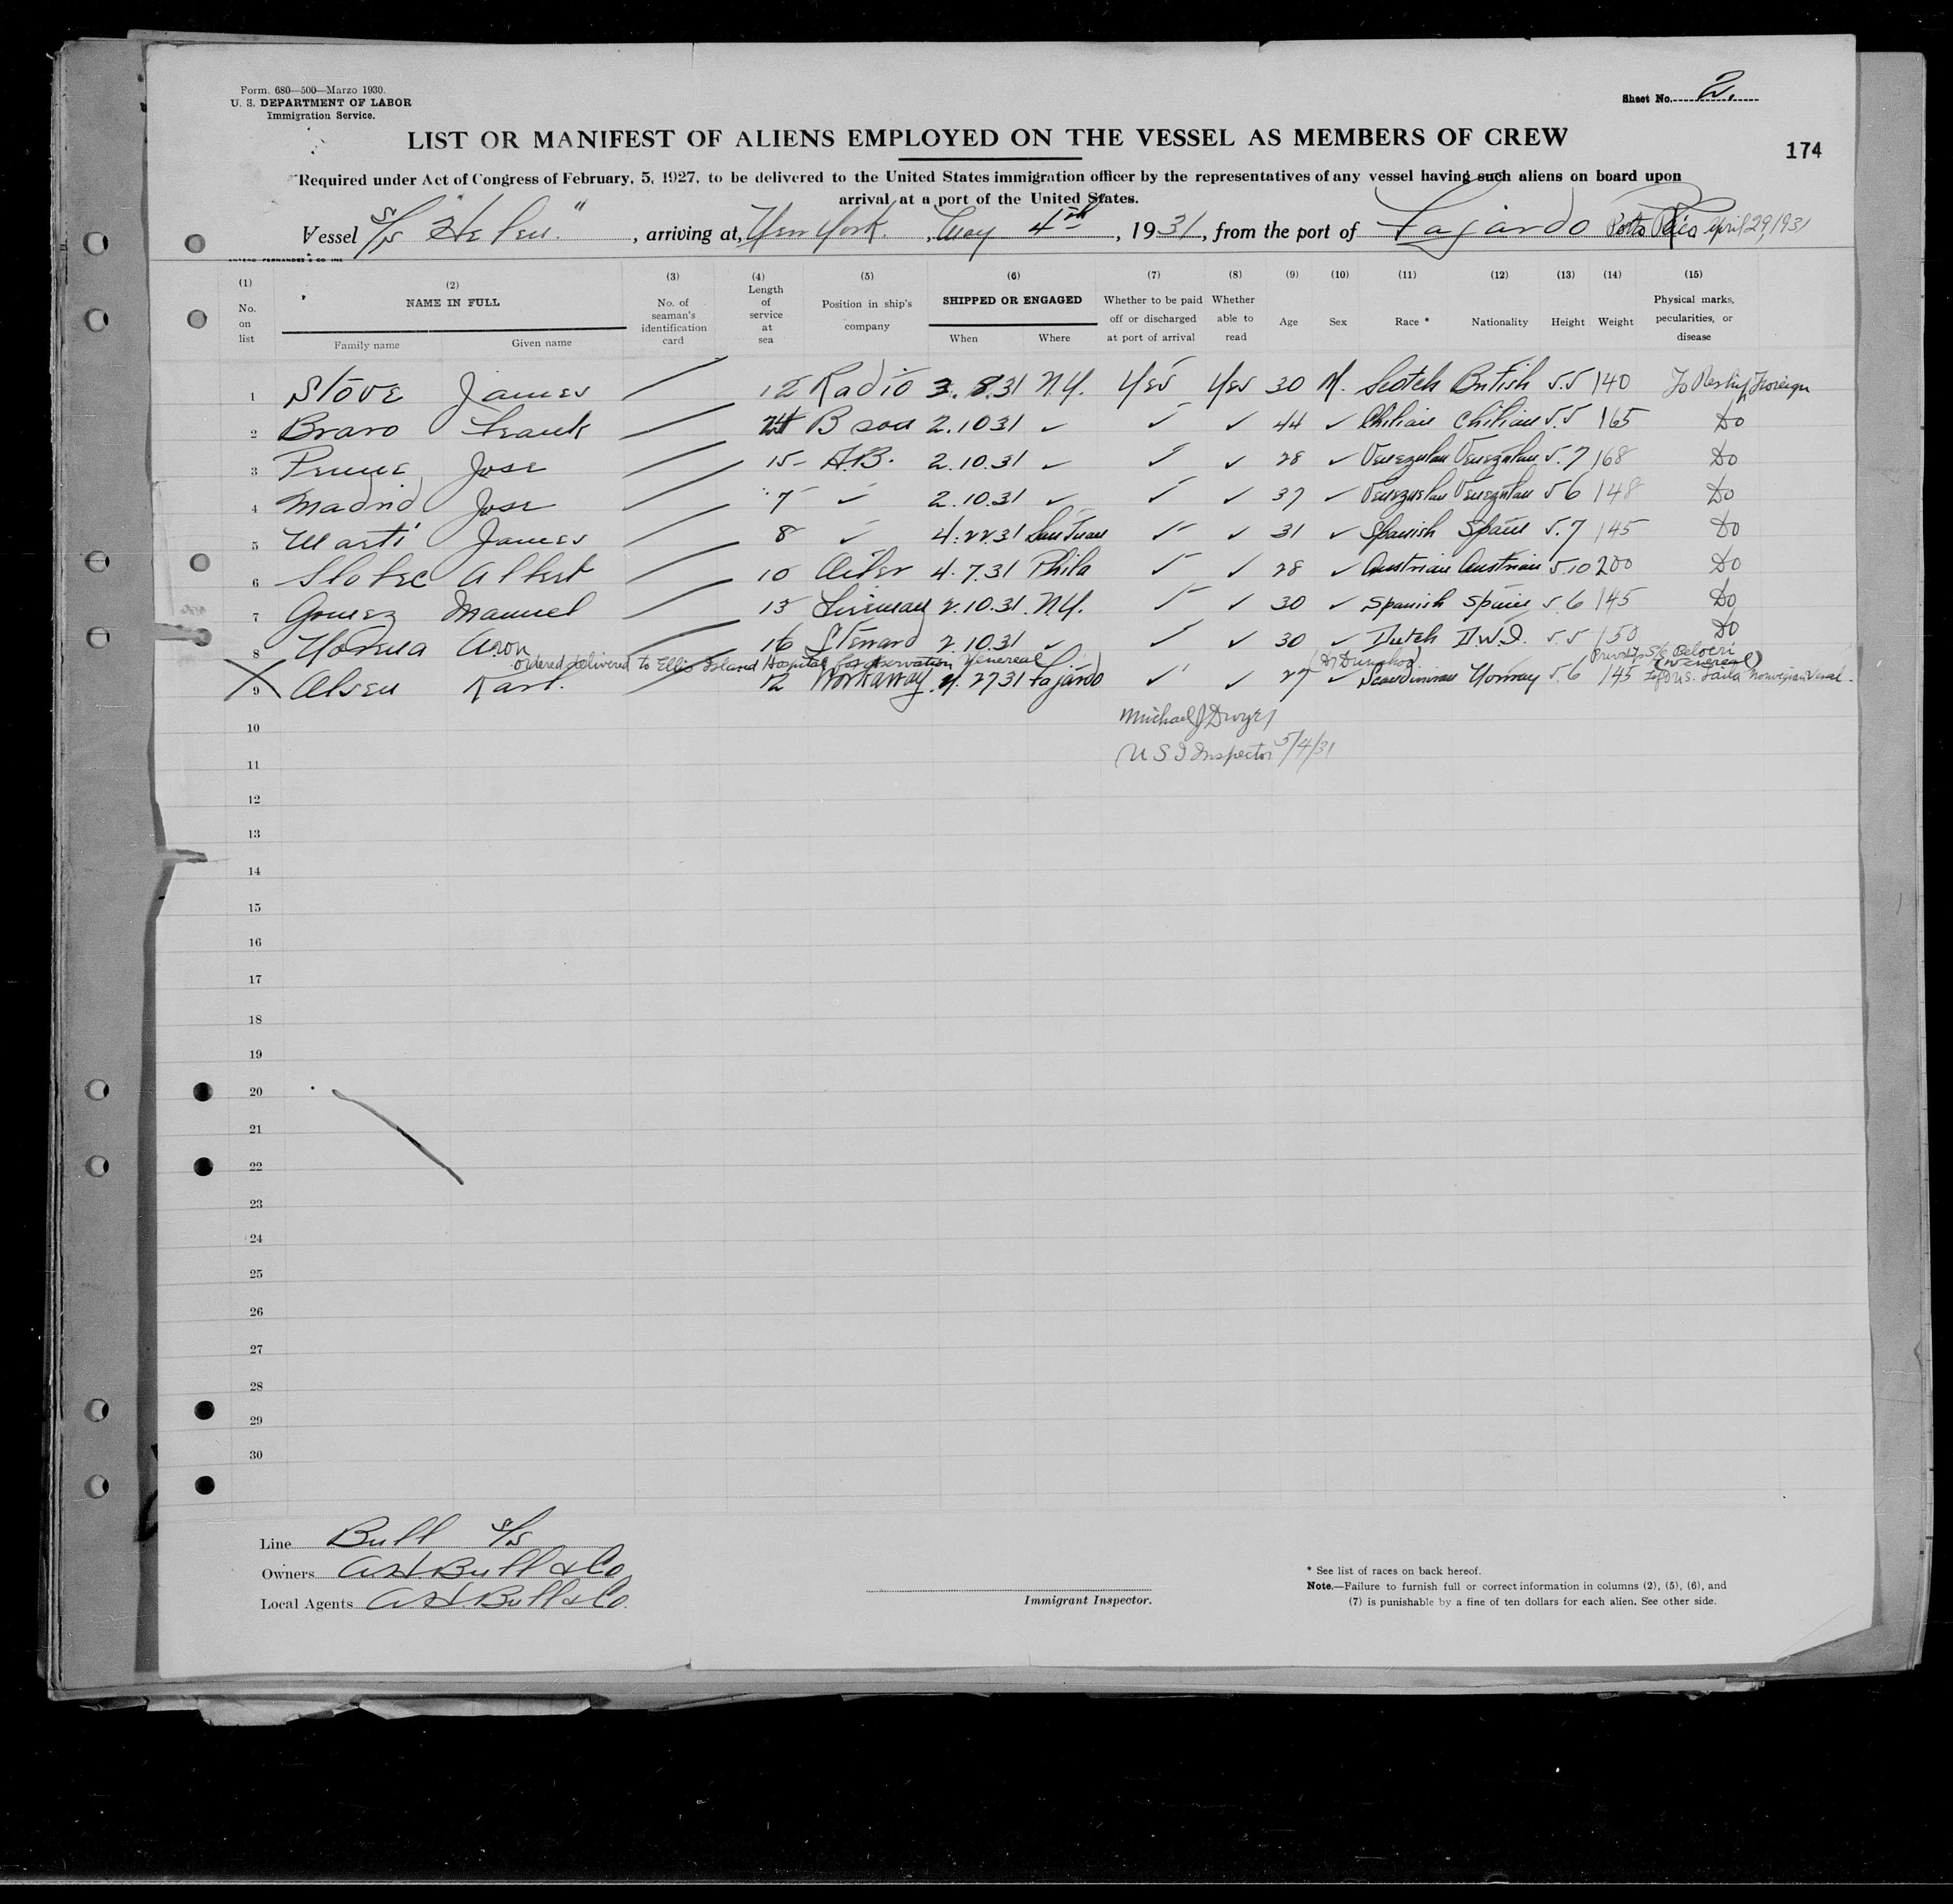 Form. 680—500—Marzo 1930.
U. S. DEPARTMENT OF LABOR
Immigration Service.
Sheet No. 2.
LIST OR MANIFEST OF ALIENS EMPLOYED ON THE VESSEL AS MEMBERS OF CREW
174
Required under Act of Congress of February, 5, 1927, to be delivered to the United States immigration officer by the representatives of any vessel having such aliens on board upon
arrival at a port of the United States.
Vessel S/S "Helen", arriving at, New York, May 4th, 1931, from the port of Fajardo Porto Rico April 29, 1931
(1) No. on list
(2) NAME IN FULL Family name Given name
(3) No. of seaman's identification card
(4) Length of service at sea
(5) Position in ship's company
(6) SHIPPED OR ENGAGED When Where
(7) Whether to be paid off or discharged at port of arrival
(8) Whether able to read
(9) Age
(10) Sex
(11) Race *
(12) Nationality
(13) Height
(14) Weight
(15) Physical marks, pecularities, or disease
1 Stove James 12 Radio 3.8.31 N.Y. Yes Yes 30 M. Scotch British 5.5 140 To Reship Foreign
2 Bravo Frank 24 B son 2.10 31 ✓ ✓ ✓ 44 ✓ Chilian Chilian 5.5 165 Do
3 Jose 15 A.B. 2.10.31 ✓ ✓ ✓ 28 ✓ Venezulan Venezulan 5.7 168 Do
4 Madrid Jose 7 ✓ 2.10.31 ✓ ✓ ✓ 37 ✓ Venezuelan Venezulan 5 6 148 Do
5 Marti James 8 ✓ 4.22.31 San Juan ✓ ✓ 31 ✓ Spanish Spain 5.7 145 Do
6 Albert 10 Oiler 4.7.31 Phila ✓ ✓ 28 ✓ Austrian Austrian 5.10 200 Do
7 Gomez Manuel 13 Fireman 2.10.31. N.Y. ✓ ✓ 30 ✓ Spanish Spain 5.6 145 Do
8 Aron 16 Steward 2.10.31 ✓ ✓ ✓ 30 ✓ Dutch D.W.I. 5 5 150 Do
ordered delivered to Ellis Island Hospital for observation Venereal
9 Olsen Karl. 12 Workaway 4.27 31 Fajardo ✓ ✓ 27 ✓ Scandinavian Norway 5.6 145 (Venereal) Norwegian Vessel
10 Michael J Dwyer
11 U S I Inspector 5/4/31
12
13
14
15
16
17
18
19
20
21
22
23
24
25
26
27
28
29
30
Line Bull S/S
Owners A.H. Bull & Co
Local Agents A.H. Bull & Co.
Immigrant Inspector.
* See list of races on back hereof.
Note.—Failure to furnish full or correct information in columns (2), (5), (6), and
(7) is punishable by a fine of ten dollars for each alien. See other side.